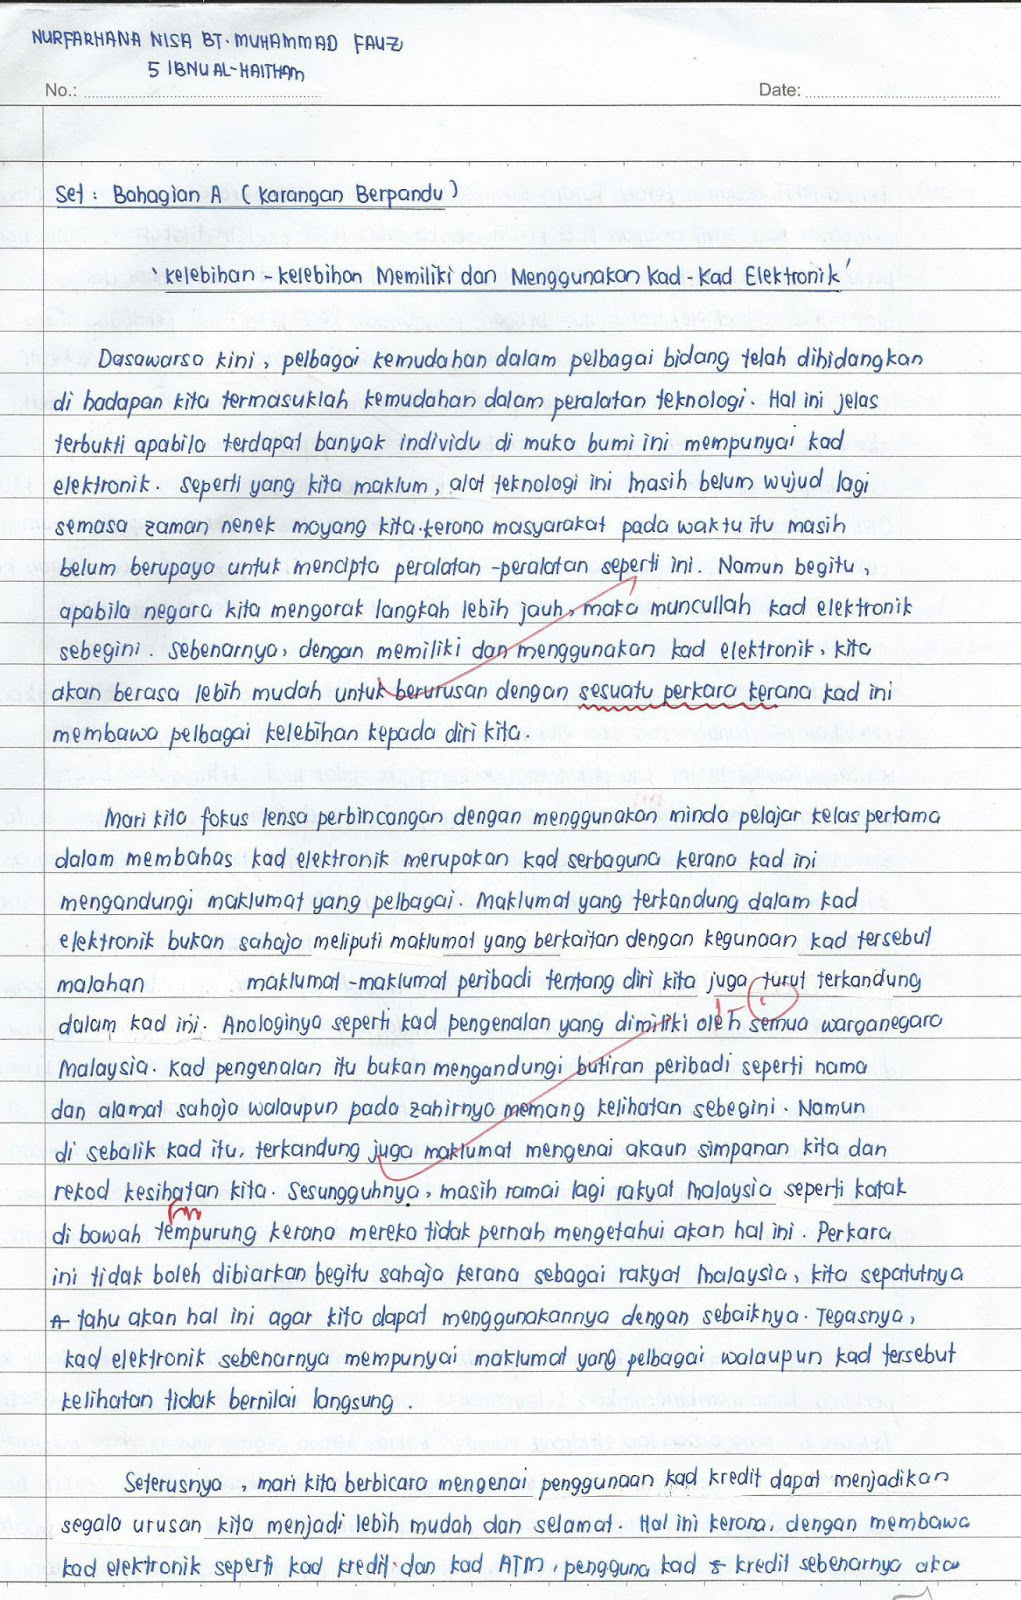 NURFARHANA NISA BT. MUHAMMAD FAUZI
5 IBNU AL-HAITHAM
No.: Date:
Set : Bahagian A ( Karangan Berpandu )
'Kelebihan - kelebihan Memiliki dan Menggunakan Kad - Kad Elektronik'
Dasawarsa kini, pelbagai kemudahan dalam pelbagai bidang telah dihidangkan
di hadapan kita termasuklah kemudahan dalam peralatan teknologi. Hal ini jelas
terbukti apabila terdapat banyak individu di muka bumi ini mempunyai kad
elektronik. Seperti yang kita maklum, alat teknologi ini masih belum wujud lagi
semasa zaman nenek moyang kita kerana masyarakat pada waktu itu masih
belum berupaya untuk mencipta peralatan -peralatan seperti ini. Namun begitu,
apabila negara kita mengorak langkah lebih jauh, maka muncullah kad elektronik
sebegini. Sebenarnya, dengan memiliki dan menggunakan kad elektronik, kita
akan berasa lebih mudah untuk berurusan dengan sesuatu perkara kerana kad ini
membawa pelbagai kelebihan kepada diri kita.
Mari kita fokus lensa perbincangan dengan menggunakan minda pelajar kelas pertama
dalam membahas kad elektronik merupakan kad serbaguna kerana kad ini
mengandungi maklumat yang pelbagai. Maklumat yang terkandung dalam kad
elektronik bukan sahaja meliputi maklumat yang berkaitan dengan kegunaan kad tersebut
malahan maklumat -maklumat peribadi tentang diri kita juga turut terkandung
dalam kad ini. Anologinya seperti kad pengenalan yang dimiliki oleh semua warganegara
Malaysia. Kad pengenalan itu bukan mengandungi butiran peribadi seperti nama
dan alamat sahaja walaupun pada zahirnya memang kelihatan sebegini. Namun
di sebalik kad itu, terkandung juga maklumat mengenai akaun simpanan kita dan
rekod kesihatan kita. Sesungguhnya, masih ramai lagi rakyat Malaysia seperti katak
di bawah tempurung kerana mereka tidak pernah mengetahui akan hal ini. Perkara
ini tidak boleh dibiarkan begitu sahaja kerana sebagai rakyat Malaysia, kita sepatutnya
tahu akan hal ini agar kita dapat menggunakannya dengan sebaiknya. Tegasnya,
kad elektronik sebenarnya mempunyai maklumat yang pelbagai walaupun kad tersebut
kelihatan tidak bernilai langsung.
Seterusnya, mari kita berbicara mengenai penggunaan kad kredit dapat menjadikan
segala urusan kita menjadi lebih mudah dan selamat. Hal ini kerana, dengan membawa
kad elektronik seperti kad kredit dan kad ATM, pengguna kad kredit sebenarnya akan